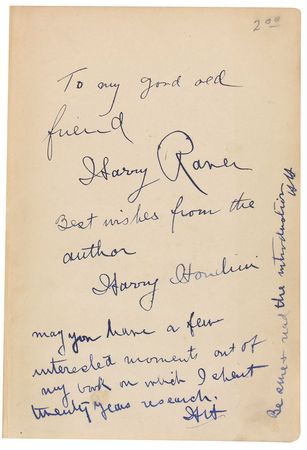 2.00
To my good old
friend
Harry Raver
Best wishes from the
author
Harry Houdini
may you have a few
interested moments out of
my book on which I spent
twenty years research.
HH
Be and read the introduction
HH